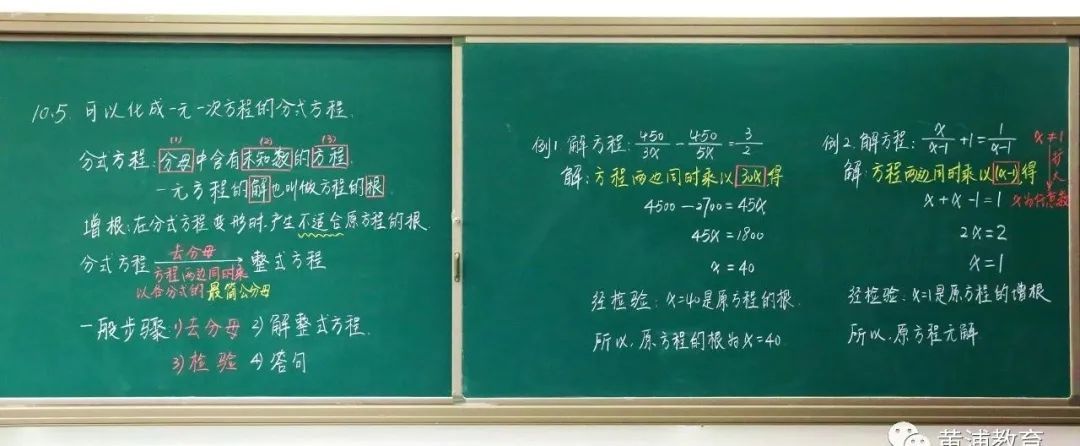 10.5 可以化成一元一次方程的分式方程.
(1) (2) (3)
分式方程:分母中含有未知数的方程.
一元方程的解也叫做方程的根.
增根:在分式方程变形时,产生不适合原方程的根
分式方程 去分母 整式方程
方程两边同时乘
以各分式的最简公分母
一般步骤:1)去分母 2)解整式方程.
3)检验 4)答句
例1.解方程:450/3x - 450/5x = 3/2
解:方程两边同时乘以30x,得
4500-2700=45x
45x=1800
x=40
经检验:x=40是原方程的根.
所以,原方程的根为x=40
例2.解方程:x/x-1 +1= 1/x-1
x≠1
扩
大
x为任意数
解:方程两边同时乘以(x-1),得
x+x-1=1
2x=2
x=1
经检验:x=1是原方程的增根
所以,原方程无解
黄浦教育